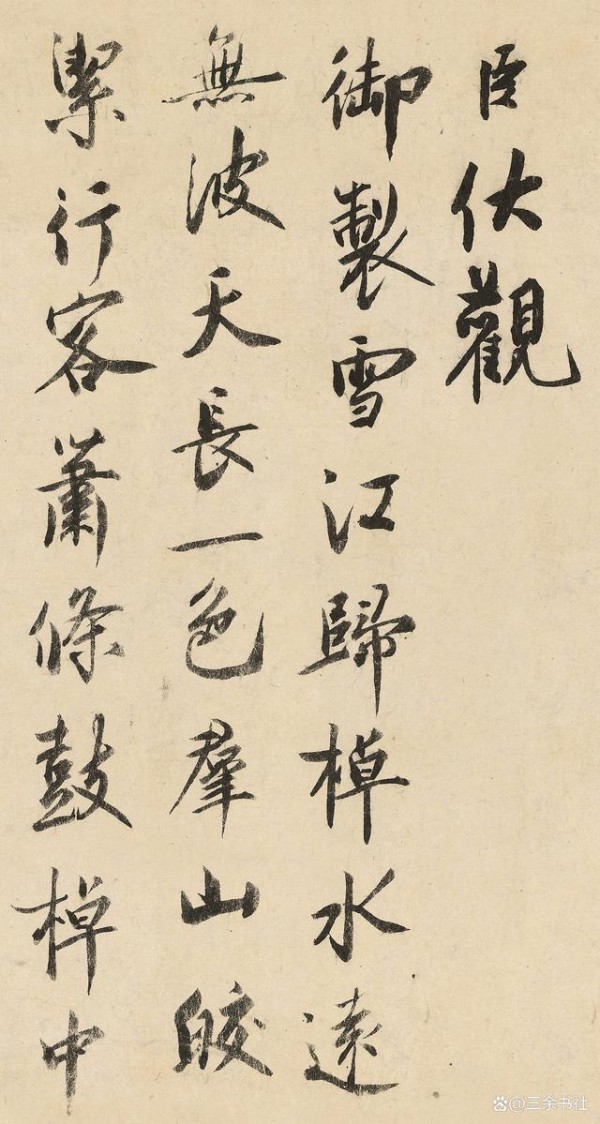 臣伏觀
御製雪江歸棹水遠
無波天長一色羣山皎
潔行客蕭條鼓棹中
@三余书社